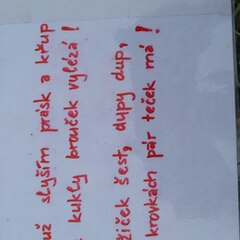 už slyším prásk a křup
kukly brouček vylézá!
žiček šest, dupy dup,
krovkách pár teček má!